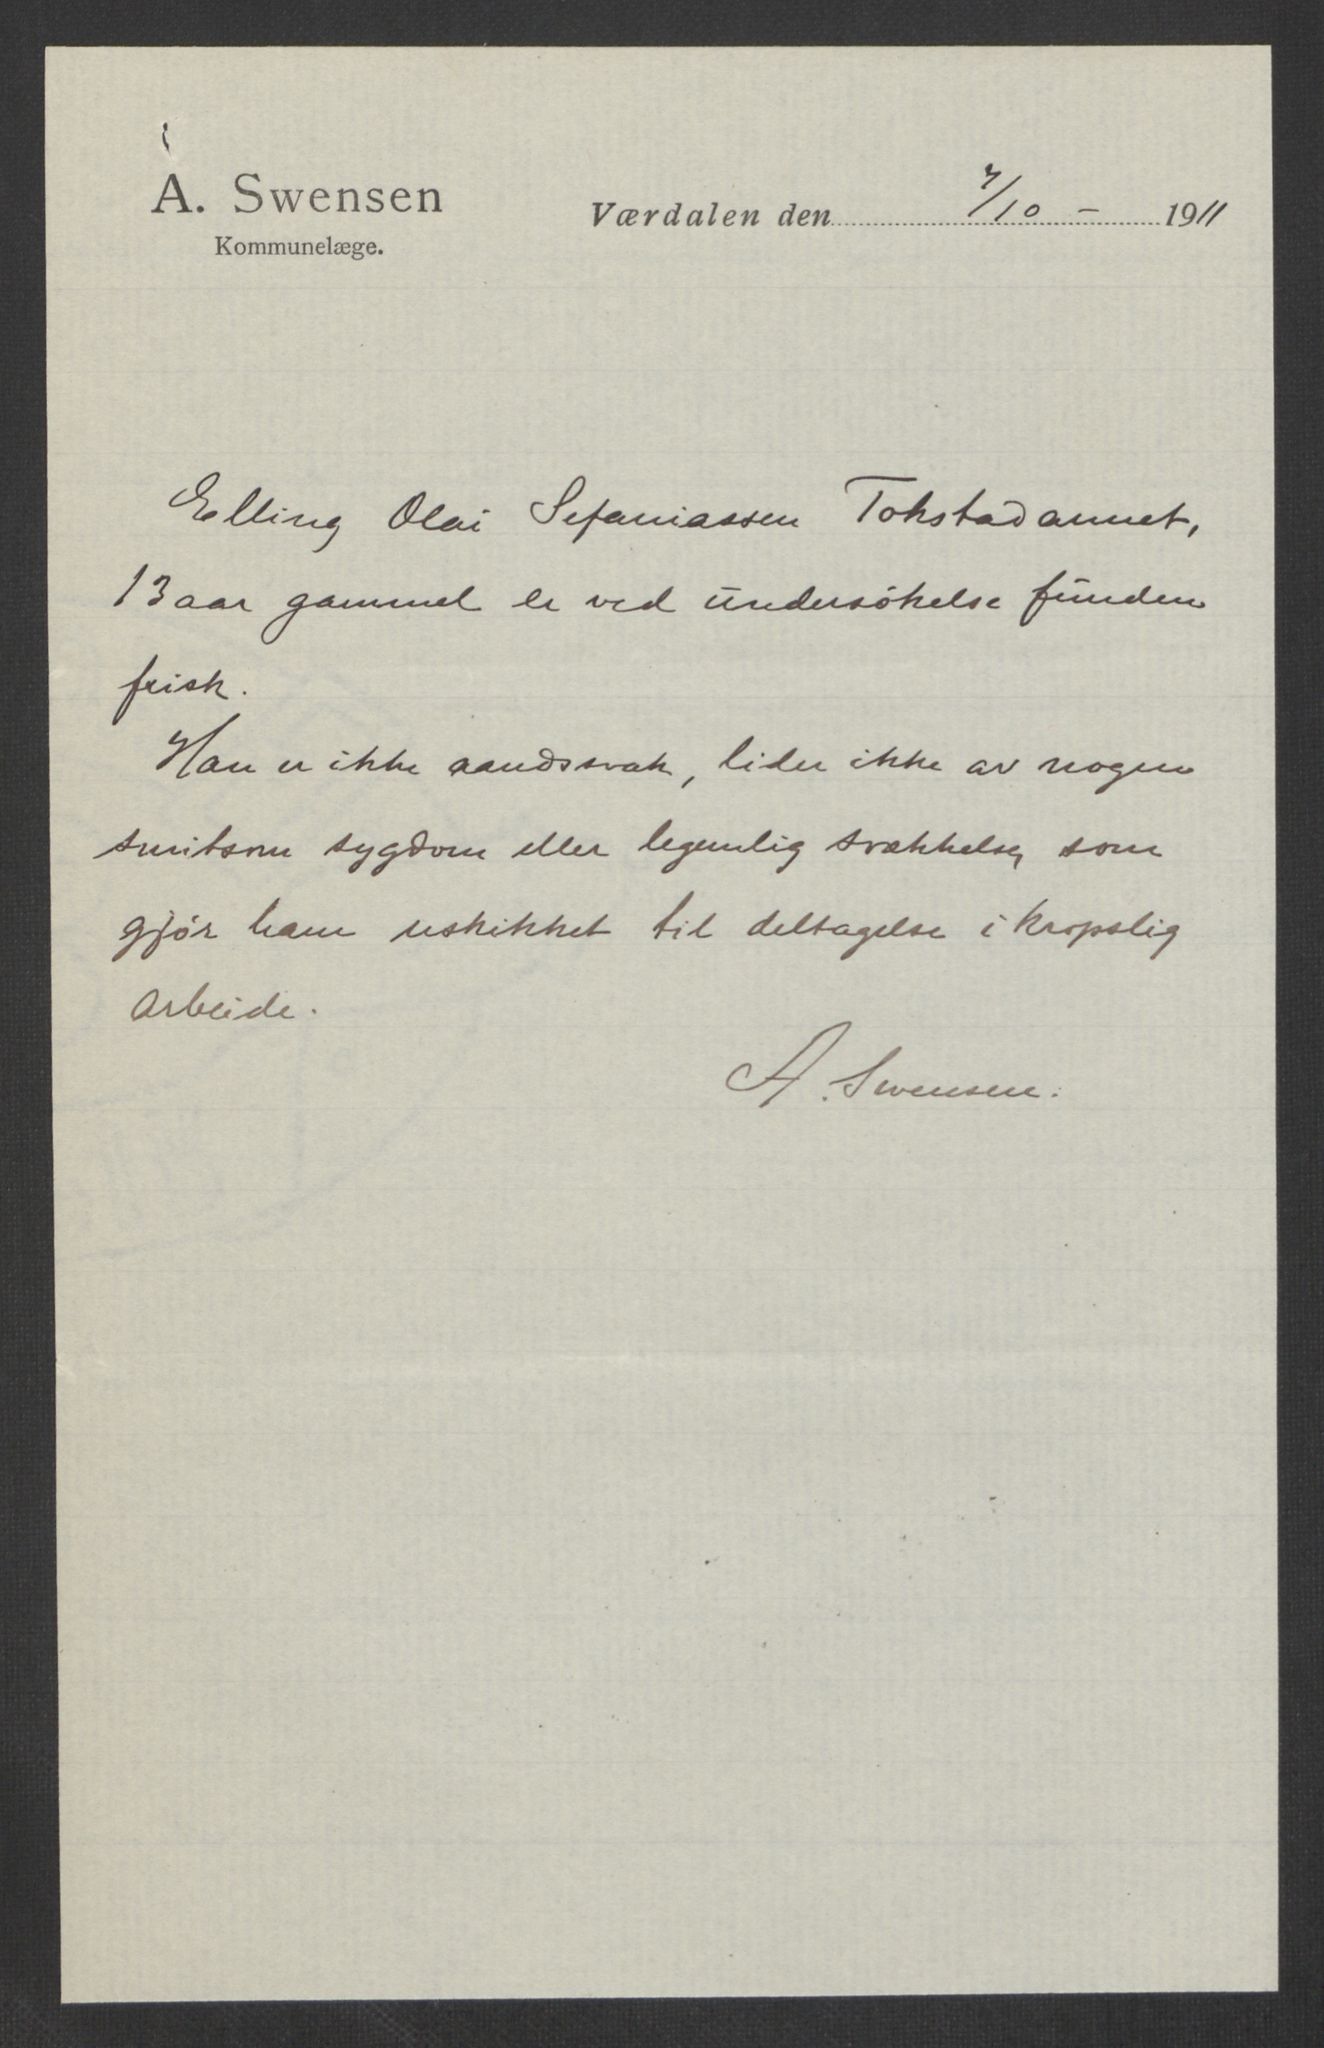 A. Swensen
Kommunelæge.
Værdalen den 7/10 - 1911
Elling Olai Sefaniassen Tokstadannet,
13 aar gammel er ved undersökelse funden
frisk.
Han er ikke aandssvak, lider ikke av nogen
smitsom sygdom eller legemlig svækkelse, som
gjör ham uskikket til deltagelse i kropslig
arbeide.
A. Swensen.